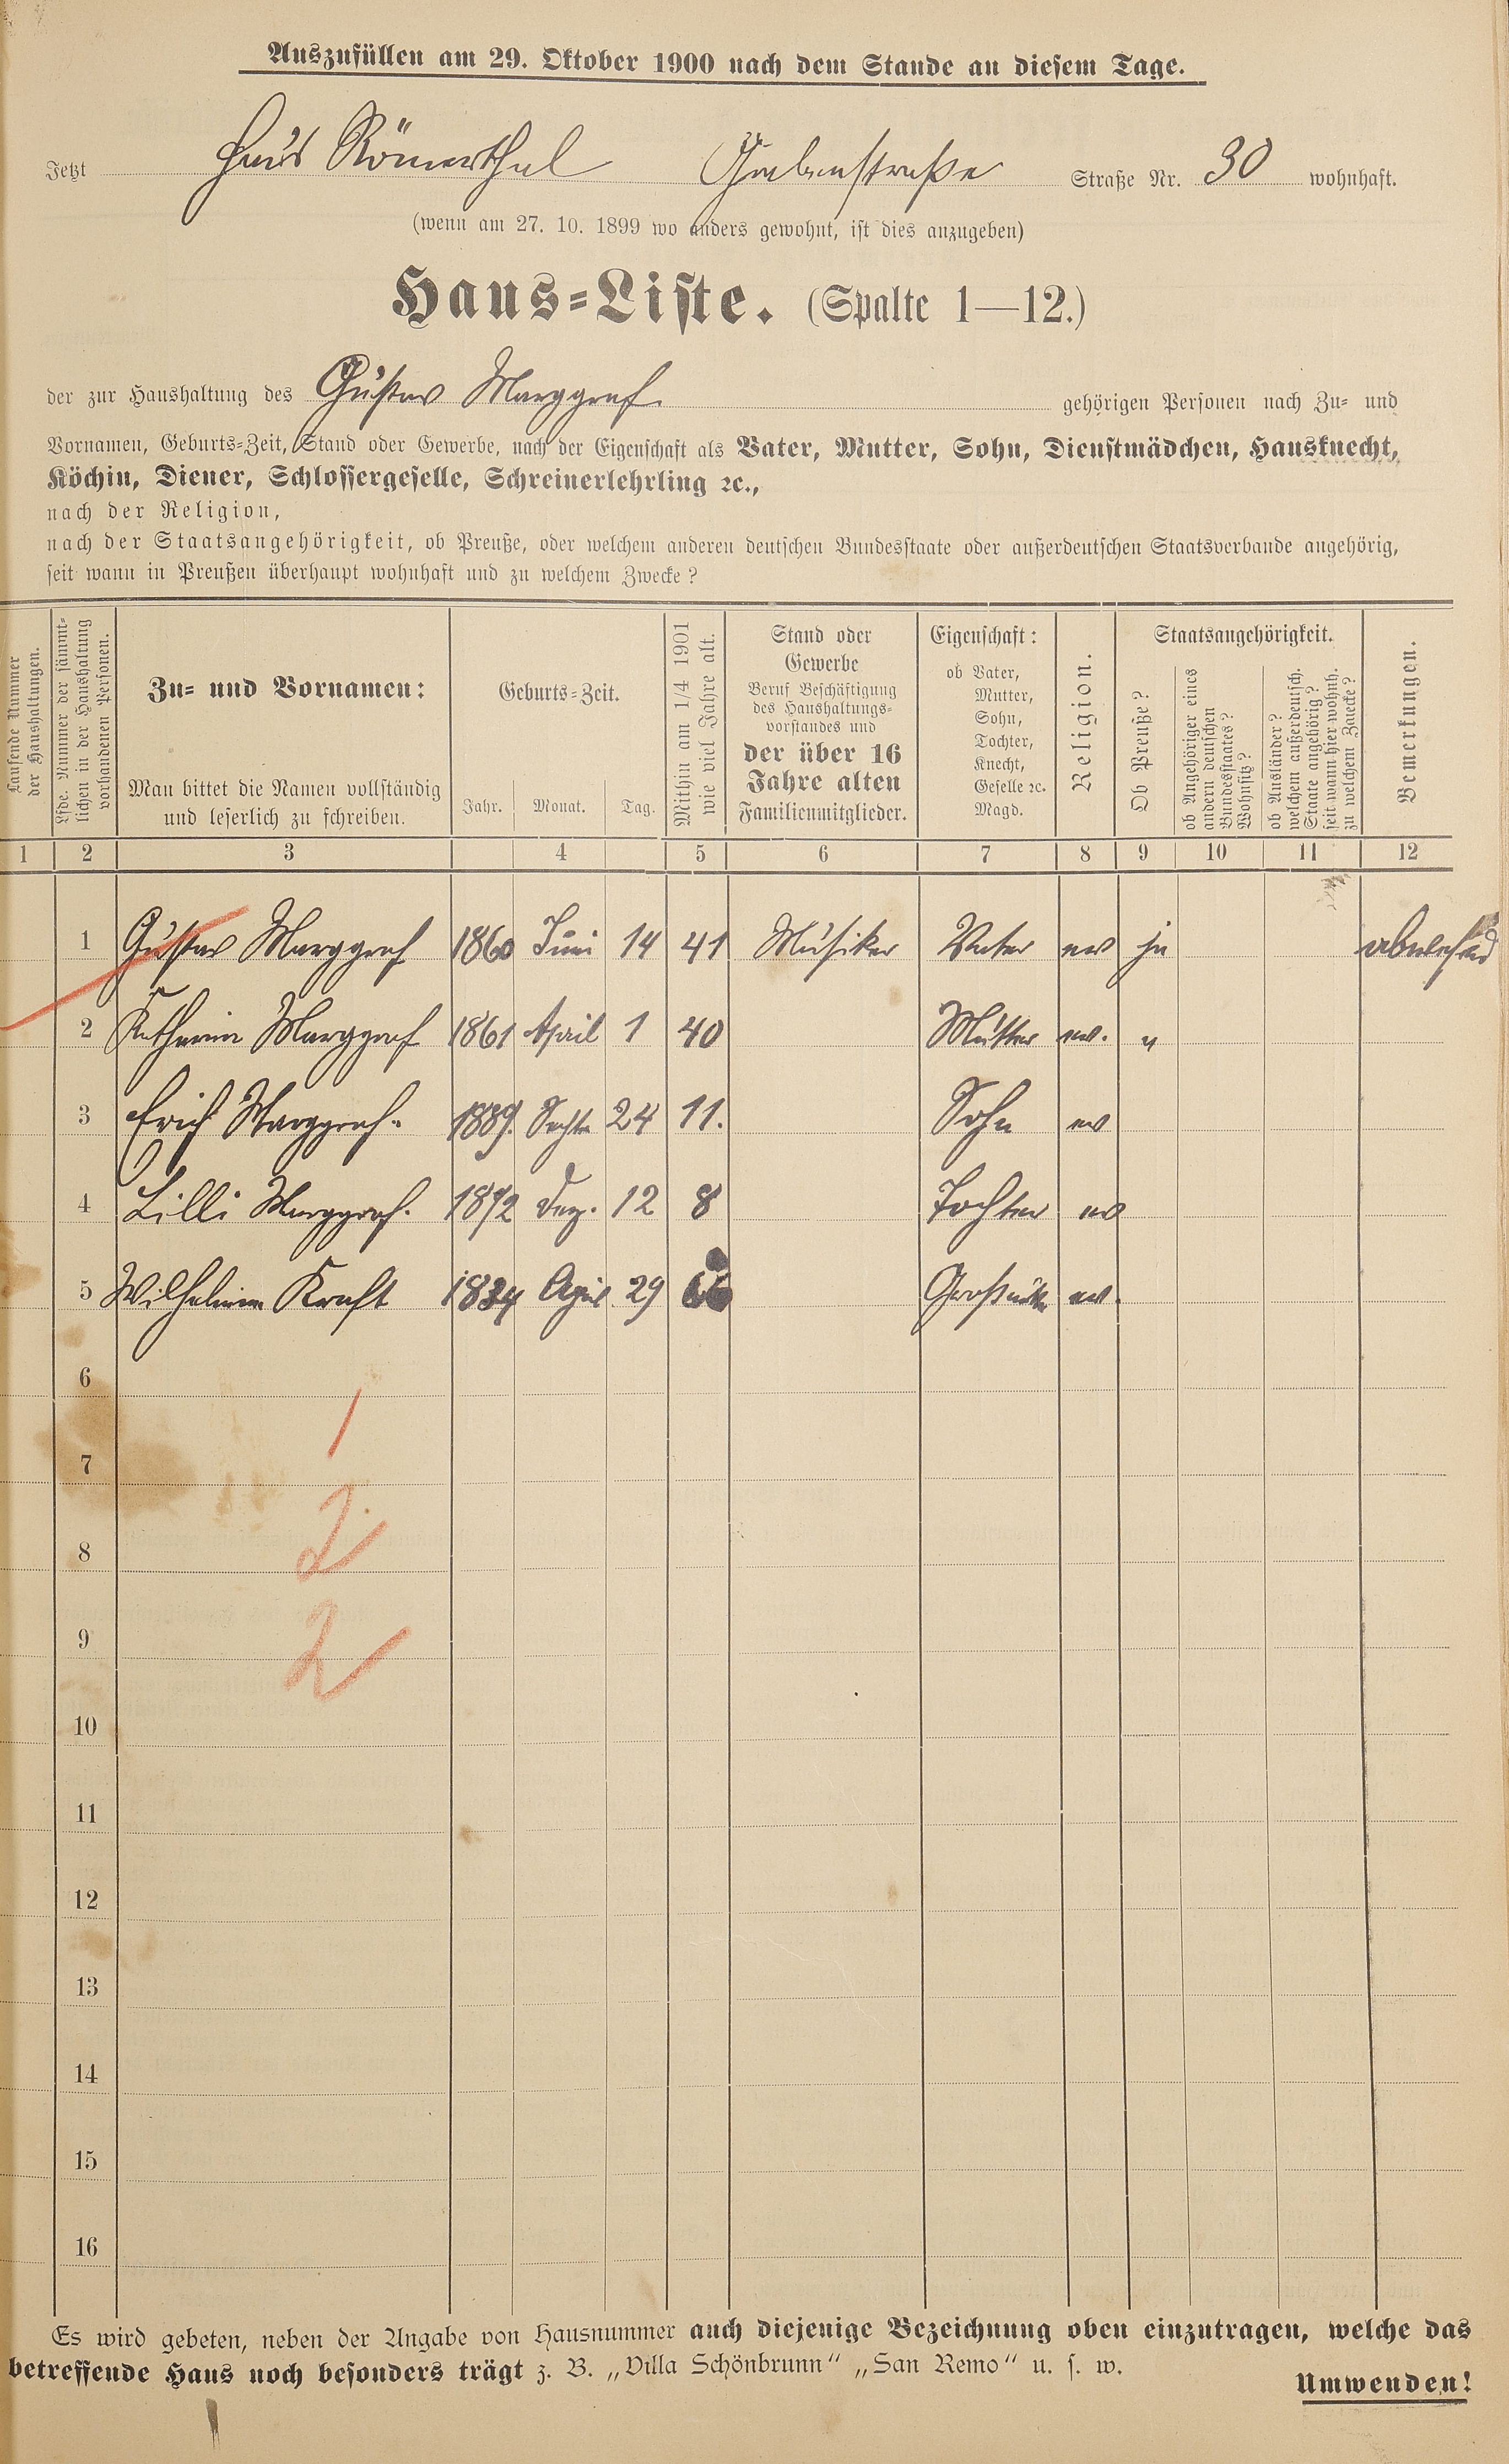 Auszufüllen am 29. Oktober 1900 nach dem Stande an diesem Tage.
Jetzt Haus Römerthal Grabenstraße Straße Nr. 30 wohnhaft.
(wenn am 27. 10. 1899 wo anders gewohnt, ist dies anzugeben)
Haus-Liste. (Spalte 1—12.)
der zur Haushaltung des Gustav Marggraf. gehörigen Personen nach Zu- und
Vornamen, Geburts-Zeit, Stand oder Gewerbe, nach der Eigenschaft als Vater, Mutter, Sohn, Dienstmädchen, Hausknecht,
Köchin, Diener, Schlossergeselle, Schreinerlehrling ꝛc.,
nach der Religion,
nach der Staatsangehörigkeit, ob Preuße, oder welchem anderen deutschen Bundesstaate oder außerdeutschen Staatsverbande angehörig,
seit wann in Preußen überhaupt wohnhaft und zu welchem Zwecke?
Laufende Nummer
der Haushaltungen.
Lfde. Nummer der sämmt-
lichen in der Haushaltung
vorhandenen Personen.
Zu- und Vornamen:
Man bittet die Namen vollständig
und leserlich zu schreiben.
Geburts-Zeit.
Jahr. Monat. Tag.
Mithin am 1/4 1901
wie viel Jahre alt.
Stand oder
Gewerbe
Beruf Beschäftigung
des Haushaltungs-
vorstandes und
der über 16
Jahre alten
Familienmitglieder.
Eigenschaft:
ob Vater,
Mutter,
Sohn,
Tochter,
Knecht,
Geselle ꝛc.
Magd.
Religion.
Staatsangehörigkeit.
Ob Preuße?
ob Angehöriger eines
andern deutschen
Bundesstaates?
Wohnsitz?
ob Ausländer?
welchem außerdeutsch.
Staate angehörig?
seit wann hier wohnh.
zu welchem Zwecke?
Bemerkungen.
1 2 3 4 5 6 7 8 9 10 11 12
1 Gustav Marggraf 1860 Juni 14 41 Musiker Vater ev ja abwesend
2 Marggraf 1861 April 1 40 Mutter ev. "
3 Erich Marggraf. 1889. 24 11. Sohn ev
4 Lilli Marggraf. 1892 Dez. 12 8 Tochter ev
5 Kraft 1834 April 29 66 ev.
6
1
7
2
8
2
9
10
11
12
13
14
15
16
Es wird gebeten, neben der Angabe von Hausnummer auch diejenige Bezeichnung oben einzutragen, welche das
betreffende Haus noch besonders trägt z. B. „Villa Schönbrunn“ „San Remo“ u. s. w.
Umwenden!